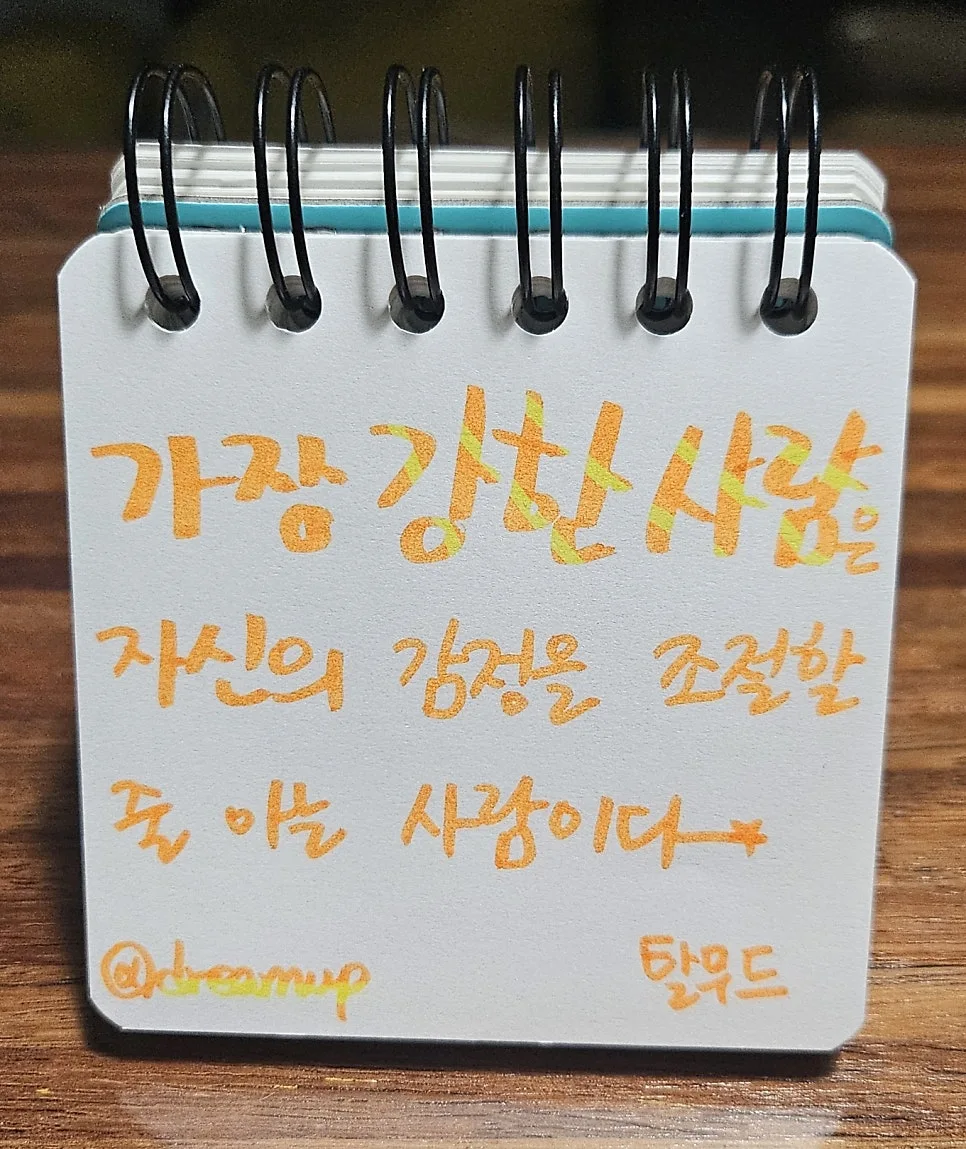 가장 강한 사람은
자신의 감정을 조절할
줄 아는 사람이다
@dreamup 탈무드